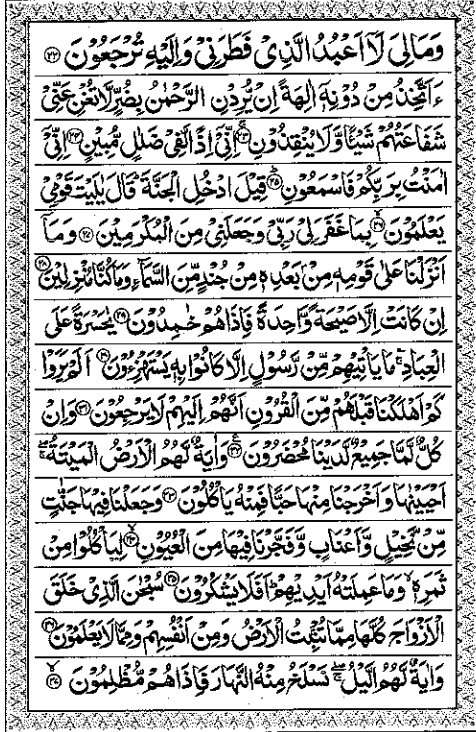 وَمَا لِیَ لَاۤ اَعْبُدُ الَّذِیْ فَطَرَنِیْ وَاِلَیْهِ تُرْجَعُوْنَ ۝۲۲
ءَاَتَّخِذُ مِنْ دُوْنِهٖۤ اٰلِهَةً اِنْ یُّرِدْنِ الرَّحْمٰنُ بِضُرٍّ لَّا تُغْنِ عَنِّیْ
شَفَاعَتُهُمْ شَیْـًٔا وَّلَا یُنْقِذُوْنِ ۝۲۳ اِنِّیْۤ اِذًا لَّفِیْ ضَلٰلٍ مُّبِیْنٍ ۝۲۴ اِنِّیْۤ
اٰمَنْتُ بِرَبِّكُمْ فَاسْمَعُوْنِ ۝۲۵ قِیْلَ ادْخُلِ الْجَنَّةَ ؕ قَالَ یٰلَیْتَ قَوْمِیْ
یَعْلَمُوْنَ ۝۲۶ بِمَا غَفَرَ لِیْ رَبِّیْ وَجَعَلَنِیْ مِنَ الْمُكْرَمِیْنَ ۝۲۷ وَمَاۤ
اَنْزَلْنَا عَلٰی قَوْمِهٖ مِنْۢ بَعْدِهٖ مِنْ جُنْدٍ مِّنَ السَّمَآءِ وَمَا كُنَّا مُنْزِلِیْنَ ۝۲۸
اِنْ كَانَتْ اِلَّا صَیْحَةً وَّاحِدَةً فَاِذَا هُمْ خٰمِدُوْنَ ۝۲۹ یٰحَسْرَةً عَلَی
الْعِبَادِ ۚ مَا یَاْتِیْهِمْ مِّنْ رَّسُوْلٍ اِلَّا كَانُوْا بِهٖ یَسْتَهْزِءُوْنَ ۝۳۰ اَلَمْ یَرَوْا
كَمْ اَهْلَكْنَا قَبْلَهُمْ مِّنَ الْقُرُوْنِ اَنَّهُمْ اِلَیْهِمْ لَا یَرْجِعُوْنَ ۝۳۱ وَاِنْ
كُلٌّ لَّمَّا جَمِیْعٌ لَّدَیْنَا مُحْضَرُوْنَ ۝۳۲ وَاٰیَةٌ لَّهُمُ الْاَرْضُ الْمَیْتَةُ ۖۚ
اَحْیَیْنٰهَا وَاَخْرَجْنَا مِنْهَا حَبًّا فَمِنْهُ یَاْكُلُوْنَ ۝۳۳ وَجَعَلْنَا فِیْهَا جَنّٰتٍ
مِّنْ نَّخِیْلٍ وَّاَعْنَابٍ وَّفَجَّرْنَا فِیْهَا مِنَ الْعُیُوْنِ ۝۳۴ لِیَاْكُلُوْا مِنْ
ثَمَرِهٖ ۙ وَمَا عَمِلَتْهُ اَیْدِیْهِمْ ؕ اَفَلَا یَشْكُرُوْنَ ۝۳۵ سُبْحٰنَ الَّذِیْ خَلَقَ
الْاَزْوَاجَ كُلَّهَا مِمَّا تُنْۢبِتُ الْاَرْضُ وَمِنْ اَنْفُسِهِمْ وَمِمَّا لَا یَعْلَمُوْنَ ۝۳۶
وَاٰیَةٌ لَّهُمُ الَّیْلُ ۖۚ نَسْلَخُ مِنْهُ النَّهَارَ فَاِذَا هُمْ مُّظْلِمُوْنَ ۝۳۷